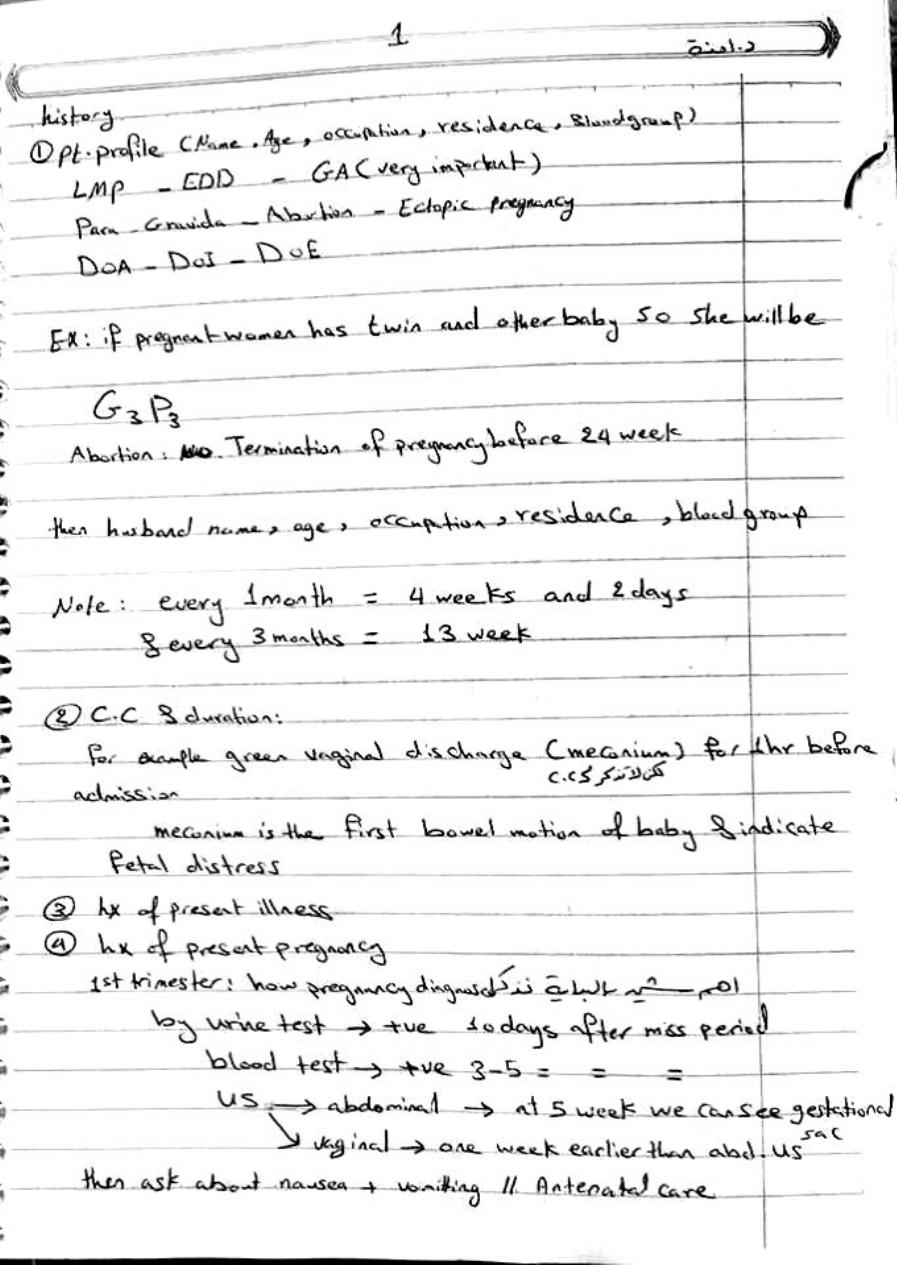 1
د. امنة
history
① pt. profile (Name, Age, occupation, residence, Bloodgroup)
LMP - EDD - GA (very important)
Para - Gravida - Abortion - Ectopic pregnancy
DOA - DOI - DOE
EX: if pregnant women has twin and other baby so she will be
G3P3
Abortion: Termination of pregnancy before 24 week
then husband name, age, occupation, residence, blood group
Note: every 1 month = 4 weeks and 2 days
& every 3 months = 13 week
② C.C & duration:
for example green vaginal discharge (meconium) for 1hr before
C.C
admission
meconium is the first bowel motion of baby & indicate
fetal distress
③ hx of present illness
④ hx of present pregnancy
1st trimester: how pregnancy diagnosed اهم شي بالبداية نذكر
by urine test → +ve 10 days after miss period
blood test → +ve 3-5 = = =
US → abdominal → at 5 week we can see gestational sac
↘ vaginal → one week earlier than abd. US
then ask about nausea + vomitting // Antenatal care